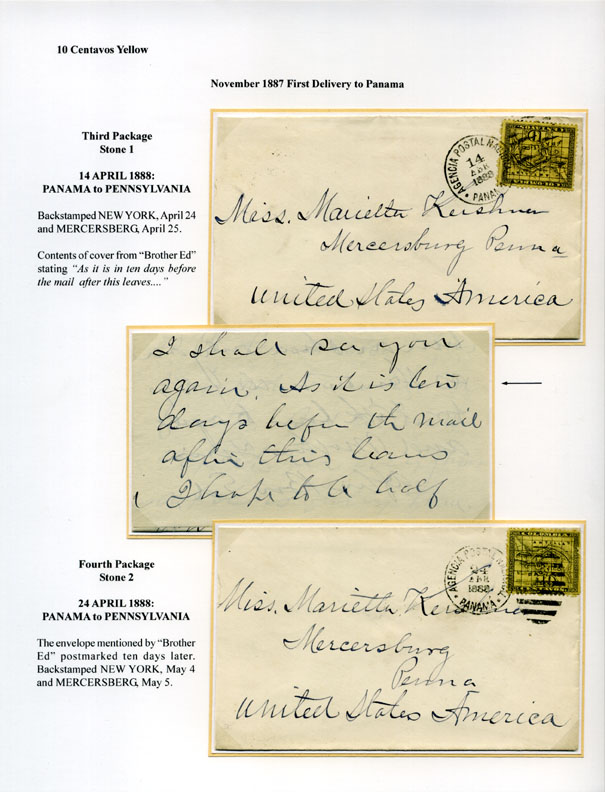 10 Centavos Yellow
November 1887 First Delivery to Panama
Third Package
Stone 1
14 APRIL 1888:
PANAMA to PENNSYLVANIA
Backstamped NEW YORK, April 24
and MERCERSBERG, April 25.
Contents of cover from “Brother Ed”
stating “As it is in ten days before
the mail after this leaves....”
AGENCIA POSTAL
14
ABR
1888
PANAMA
Miss. Marietta Kershner
Mercersburg Penna
United States America
I shall see you
again. As it is ten
days before the mail
after this leaves
I hope to be half
Fourth Package
Stone 2
24 APRIL 1888:
PANAMA to PENNSYLVANIA
The envelope mentioned by “Brother
Ed” postmarked ten days later.
Backstamped NEW YORK, May 4
and MERCERSBERG, May 5.
COLOMBIA
AGENCIA POSTAL
24
ABR
1888
PANAMA
Miss. Marietta Kershner
Mercersburg
Penna
United States America